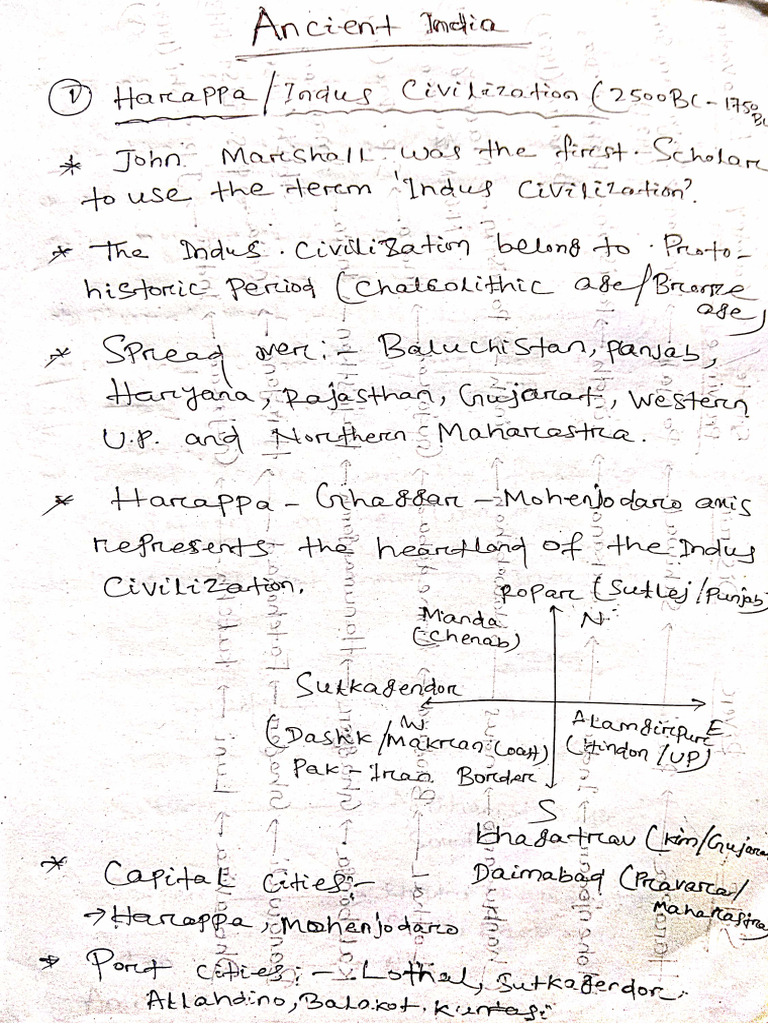 Ancient India
① Harappa/Indus Civilization (2500BC-1750 BC
* John Marshall was the first Scholar
to use the term 'Indus Civilization'.
* The Indus Civilization belong to Proto-
historic Period (Chalcolithic age/Bronze
age)
* Spread over:- Baluchistan, Panjab,
Haryana, Rajasthan, Gujarat, Western
U.P. and Northern Maharastra.
* Harappa - Ghaggar - Mohenjodaro axis
represents the heartland of the Indus
Civilization.
Ropar (Sutlej/Punjab)
Manda
(Chenab)
N
Sutkagendor
W
E
(Dashk/Makran Coast)
Pak-Iran Border
Alamgirpur
(Hindon/UP)
S
Bhagatrav (Kim/Gujara
Daimabad (Pravara/
Maharastra)
* Capital Cities:-
→ Harappa, Mohenjodaro
* Port cities:- Lothal, Sutkagendor,
Allahdino, Balakot, Kuntasi